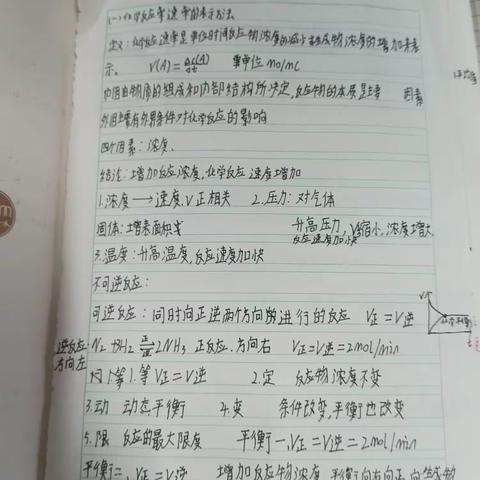 (一)化学反应速率的表示方法
定义:化学反应速率是单位时间反应物浓度的减小或生成物浓度的增加来表
示。 V(A)=Δc(A)/Δt 单位 mol/
内因由物质的组成和内部结构所决定,反应物的本质是主要 因素
外因主要有外界条件对化学反应的影响
四个因素:浓度、
结论:增加反应浓度,化学反应速度增加
1.浓度→速度,V正相关 2.压力:对气体
固体:增表面积 升高压力,V缩小,浓度增大
反应速度加快
3.温度:升高温度,反应速度加快
不可逆反应:
可逆反应:同时向正逆两个方向进行的反应 V正=V逆
逆反应:
方向左
N2+3H2⇌2NH3 正反应.方向右 V正=V逆=2mol/min
1.等 V正=V逆 2.定 反应物浓度不变
3.动 动态平衡 4.变 条件改变,平衡也改变
5.限 反应的最大限度 平衡一,V正=V逆=2mol/min
平衡二,V正=V逆 增加反应物浓度 平衡向右向正向